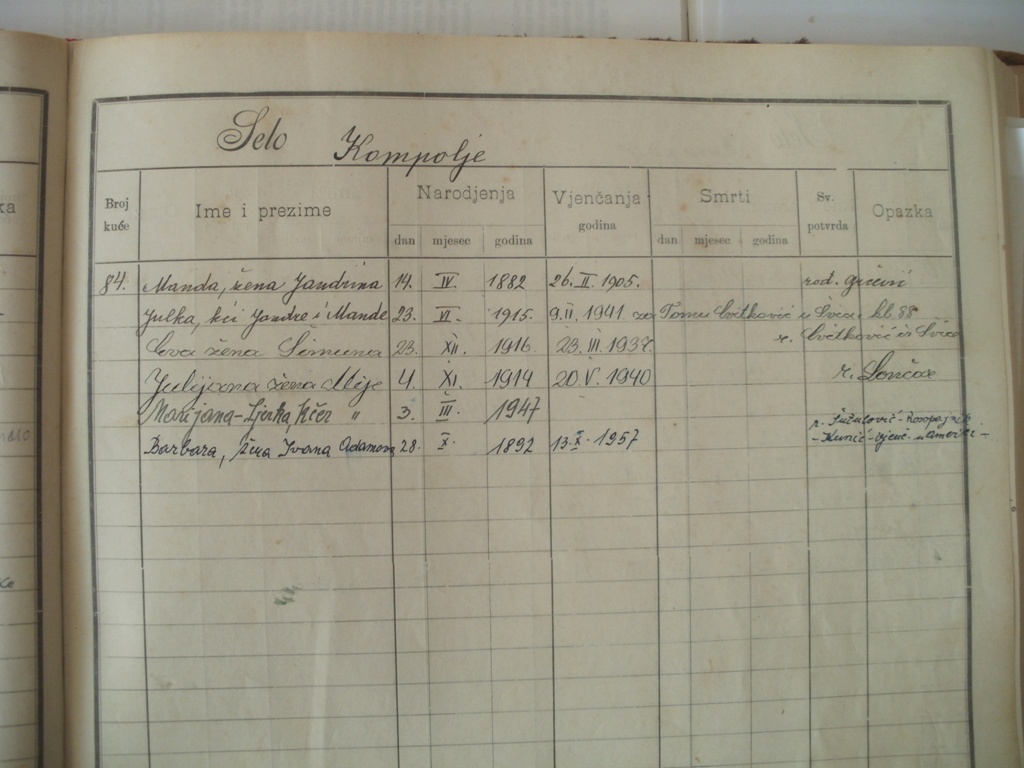 Selo Kompolje
Broj kuće Ime i prezime Narodjenja Vjenčanja Smrti Sv. potvrda Opazka
dan mjesec godina godina dan mjesec godina
84. Manda, žena Jandrina 14. IV. 1882 26. II. 1905. rod. Grčević
Julka, kći Jandre i Mande 23. VI. 1915. 9.II. 1941 za Tomu Cvitković iz Švice kb. 88
Eva žena Šimuna 23. XII. 1916. 23. III. 1937. r. Cvitković iz Švice
Julijana žena Mije 4. XI. 1914 20. V. 1940 r. Lončar
Marijana-Ljerka, kćer " 3. III. 1947
Barbara, žena Ivana Adamova 28. X. 1892 13. X. 1957 r.
- Kunić - vjenč. u Americi -